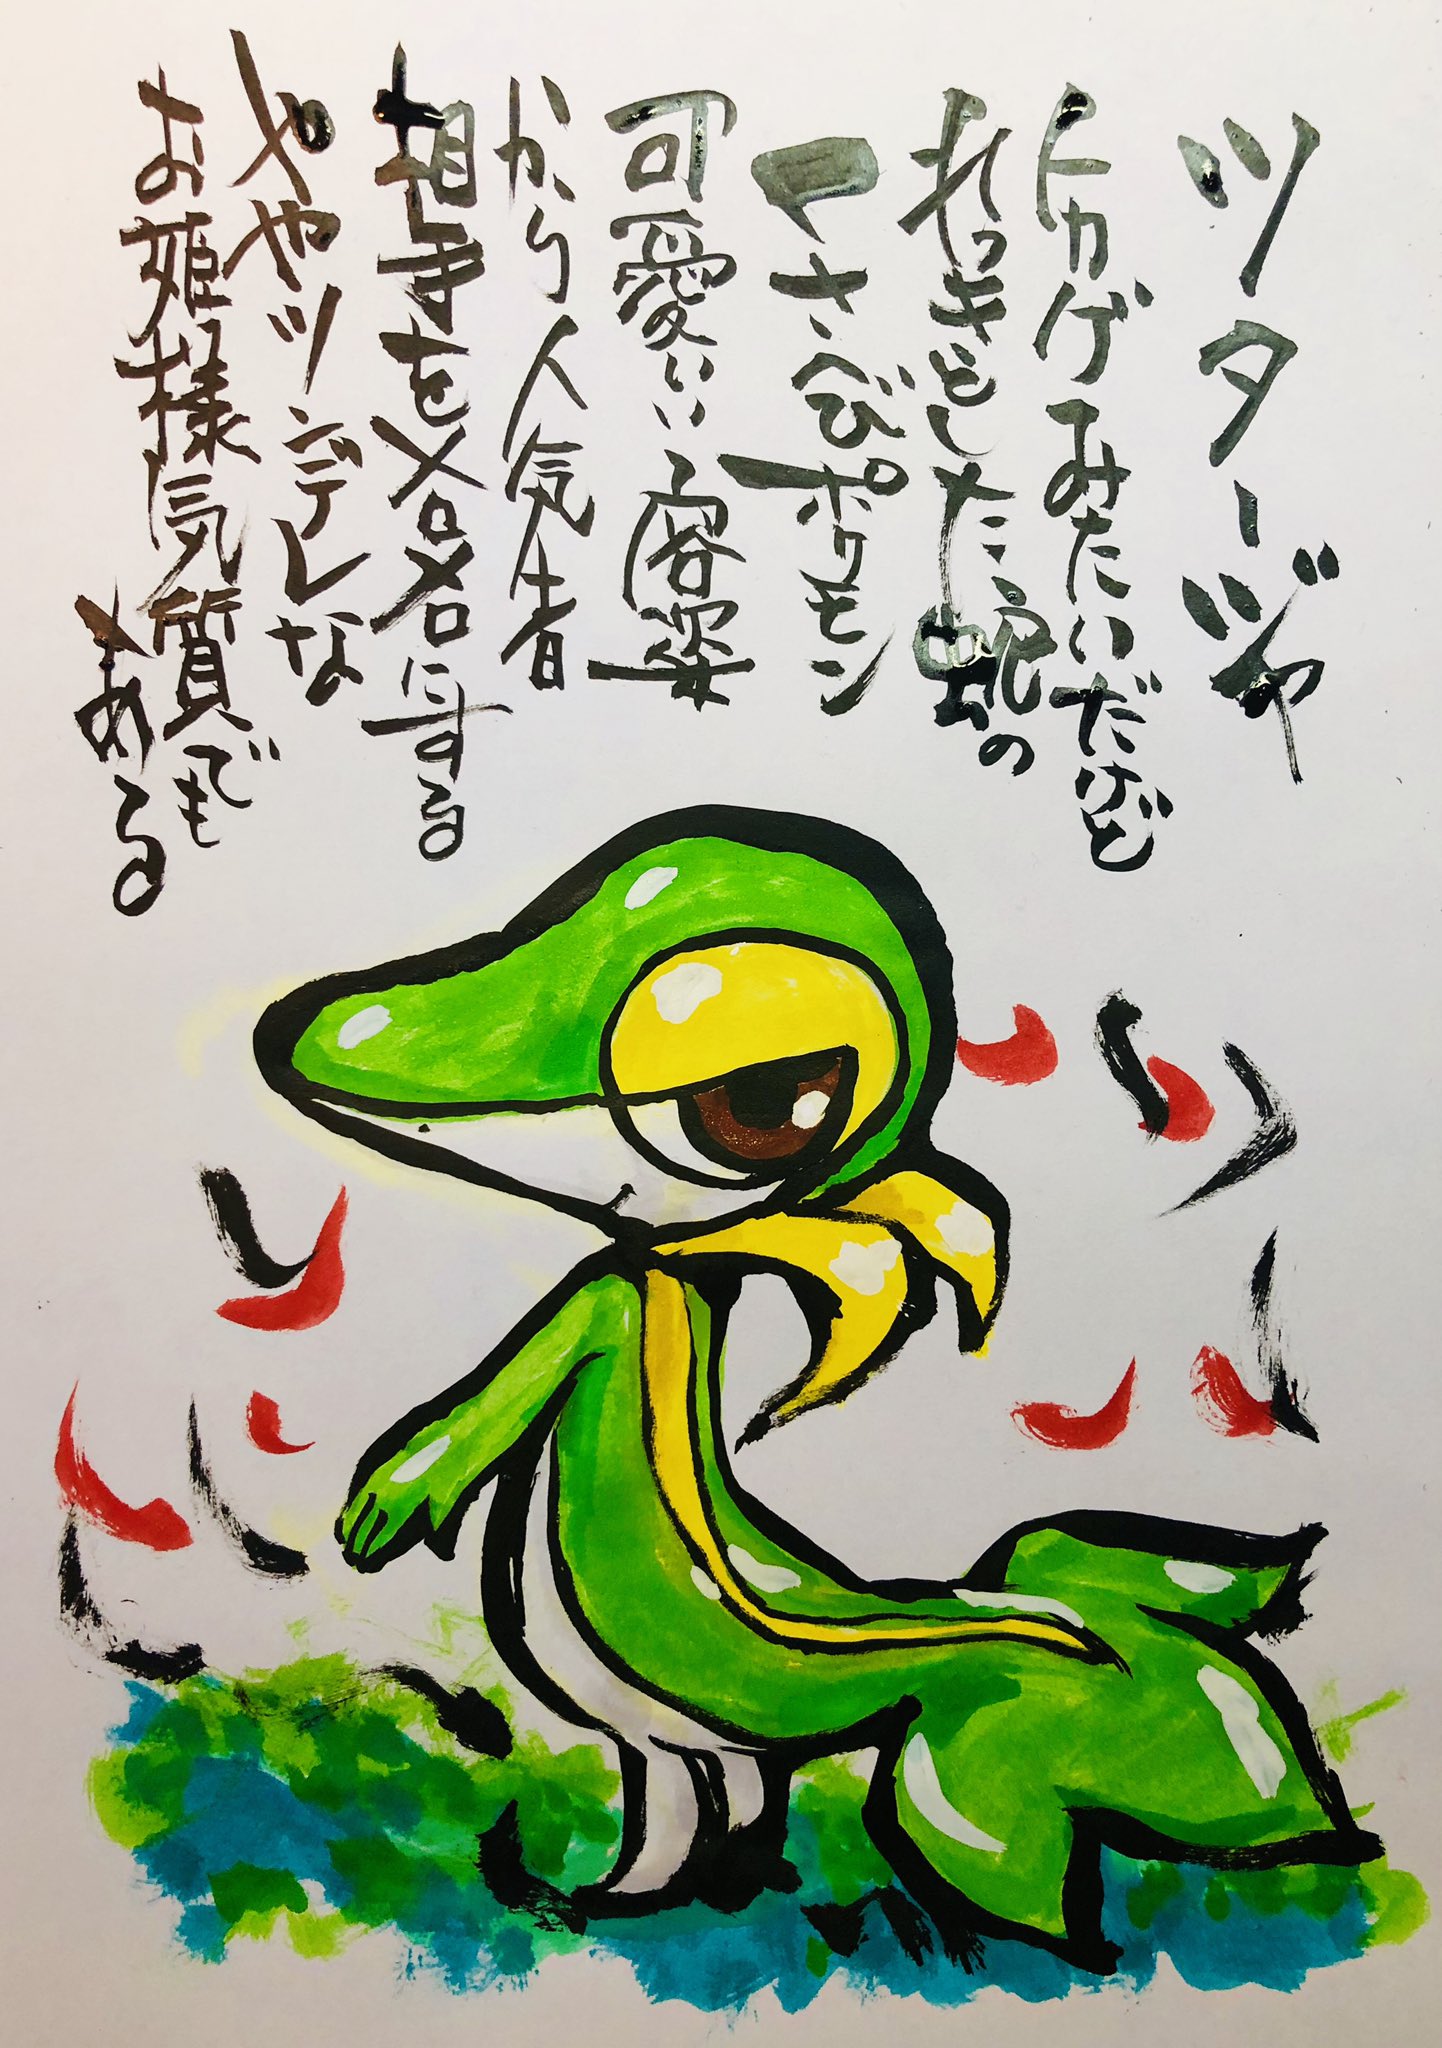 ツタージャ
トカゲみたいだけど
れっきとした蛇の
くさへびポケモン
可愛いい容姿
から人気者
相手をメロメロにする
ややツンデレな
お姫様気質でも
ある